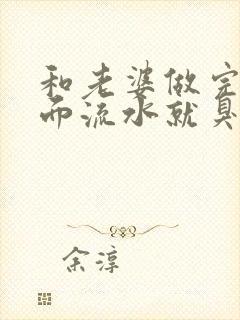 和老婆做完
而流水就臭
余淳